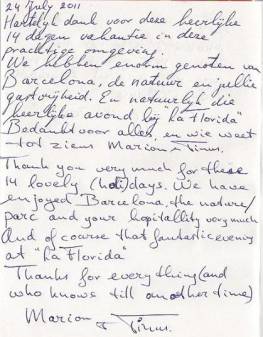 24 July 2011
Hartelijk dank voor deze heerlijke
14 dagen vakantie in deze
prachtige omgeving.
We hebben enorm genoten van
Barcelona, de natuur en jullie
gastvrijheid. En natuurlijk die
heerlijke avond bij "La Florida"
Bedankt voor alles, en wie weet
tot ziens Marion & Timus.
Thank you very much for these
14 lovely (holi)days. We have
enjoyed Barcelona, the nature/
parc and your hopitallity very much
And of course that fantastic evening
at "La Florida"
Thanks for everything (and
who knows till another time)
Marion & Timus.